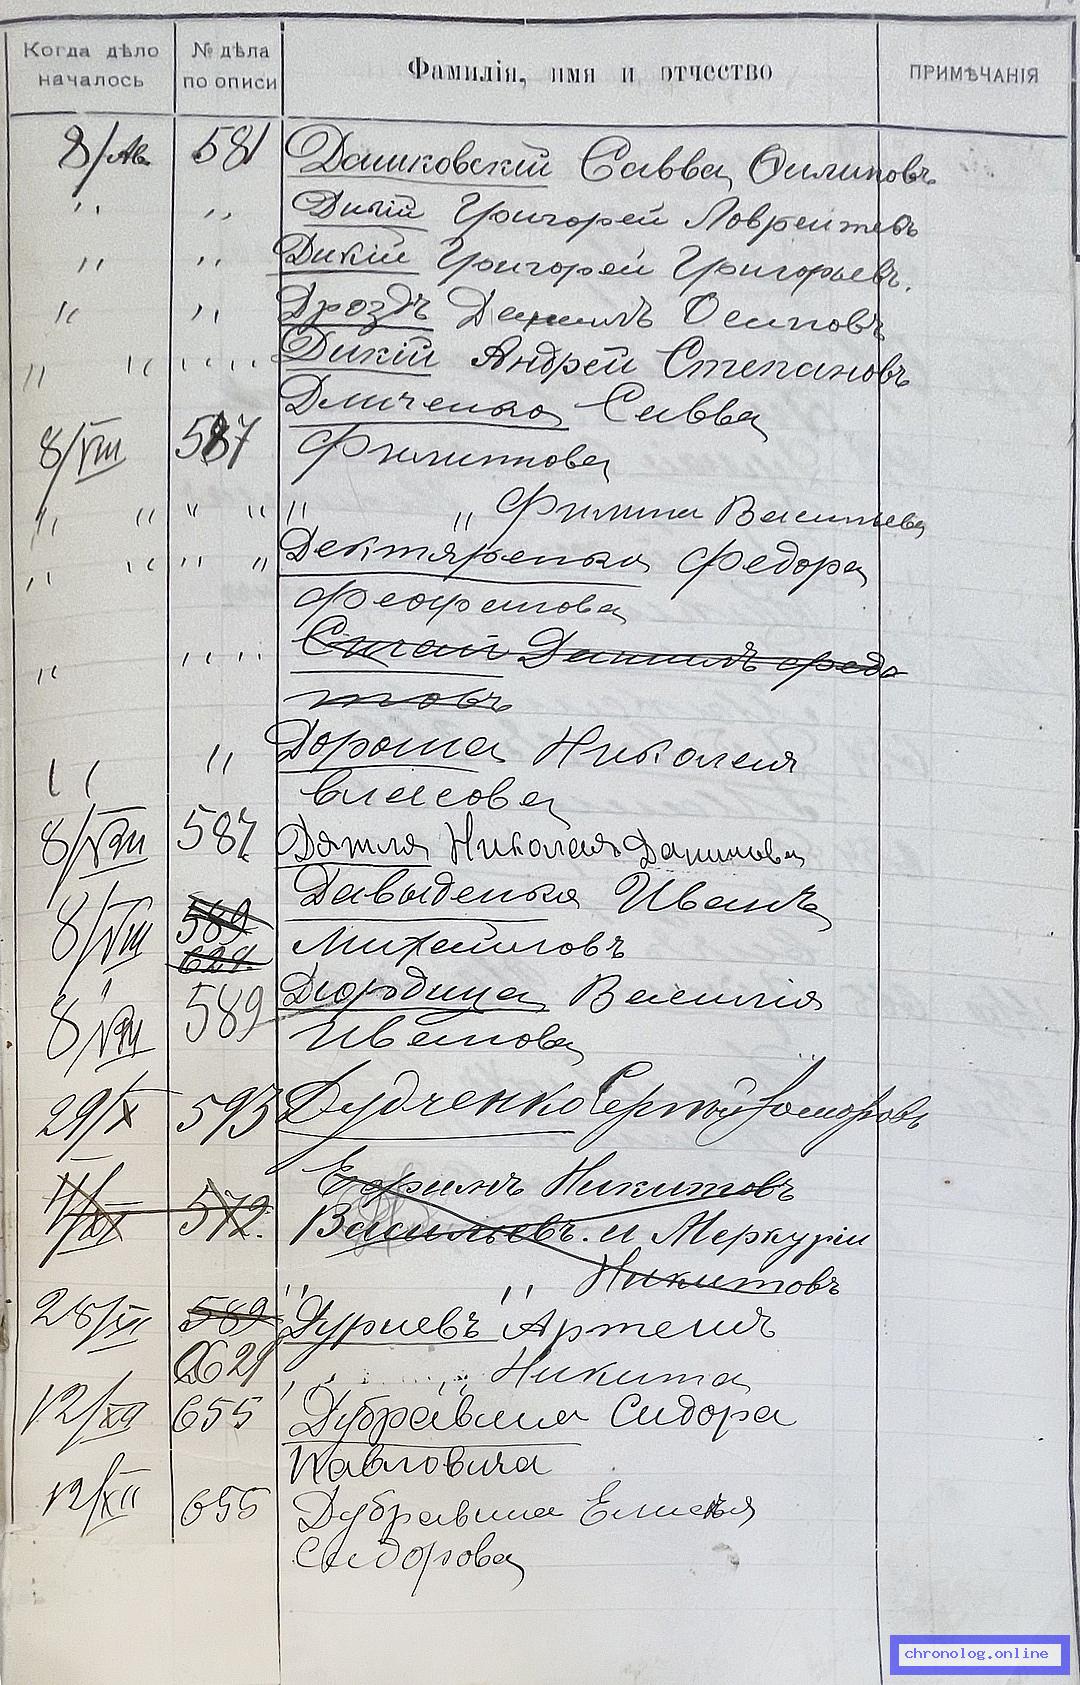 Когда дѣло началось № дѣла по описи Фамилія, имя и отчество ПРИМѢЧАНІЯ
8/Ав. 581 Дашковскій Савва Филиповъ
" " Дикій Григорей Лаврентьевъ
" " Дикій Григорей Григорьевъ.
" " Дроздъ Данилъ Осиповъ
" " " " Дикій Андрей Степановъ
Дмиченко Савва
8/VIII 587 Филиппова
" " " " " " Филипа Васильева
" " " " Дектяренка Федора
Феофанова
" " " Данилъ Федо
товъ
" " Дороша Николая
Власова
8/VIII 587 Дятля Николая Данилова
Давыденка Иванъ
8/VIII 589 Михайловъ
628.
" Дюрдица Василія
8/VIII 589 Иванова
29/X 593 Дудченко Сергій
572. Ефимъ Никитовъ
Васильевъ. и Меркурій
" " Никитовъ
28/XI 589 Дурневъ Артемій
629 " " Никита
12/XII 655 Дубравина Сидора
Павловича
12/XII 655 Дубравина Елисѣя
Сидорова
chronolog.online